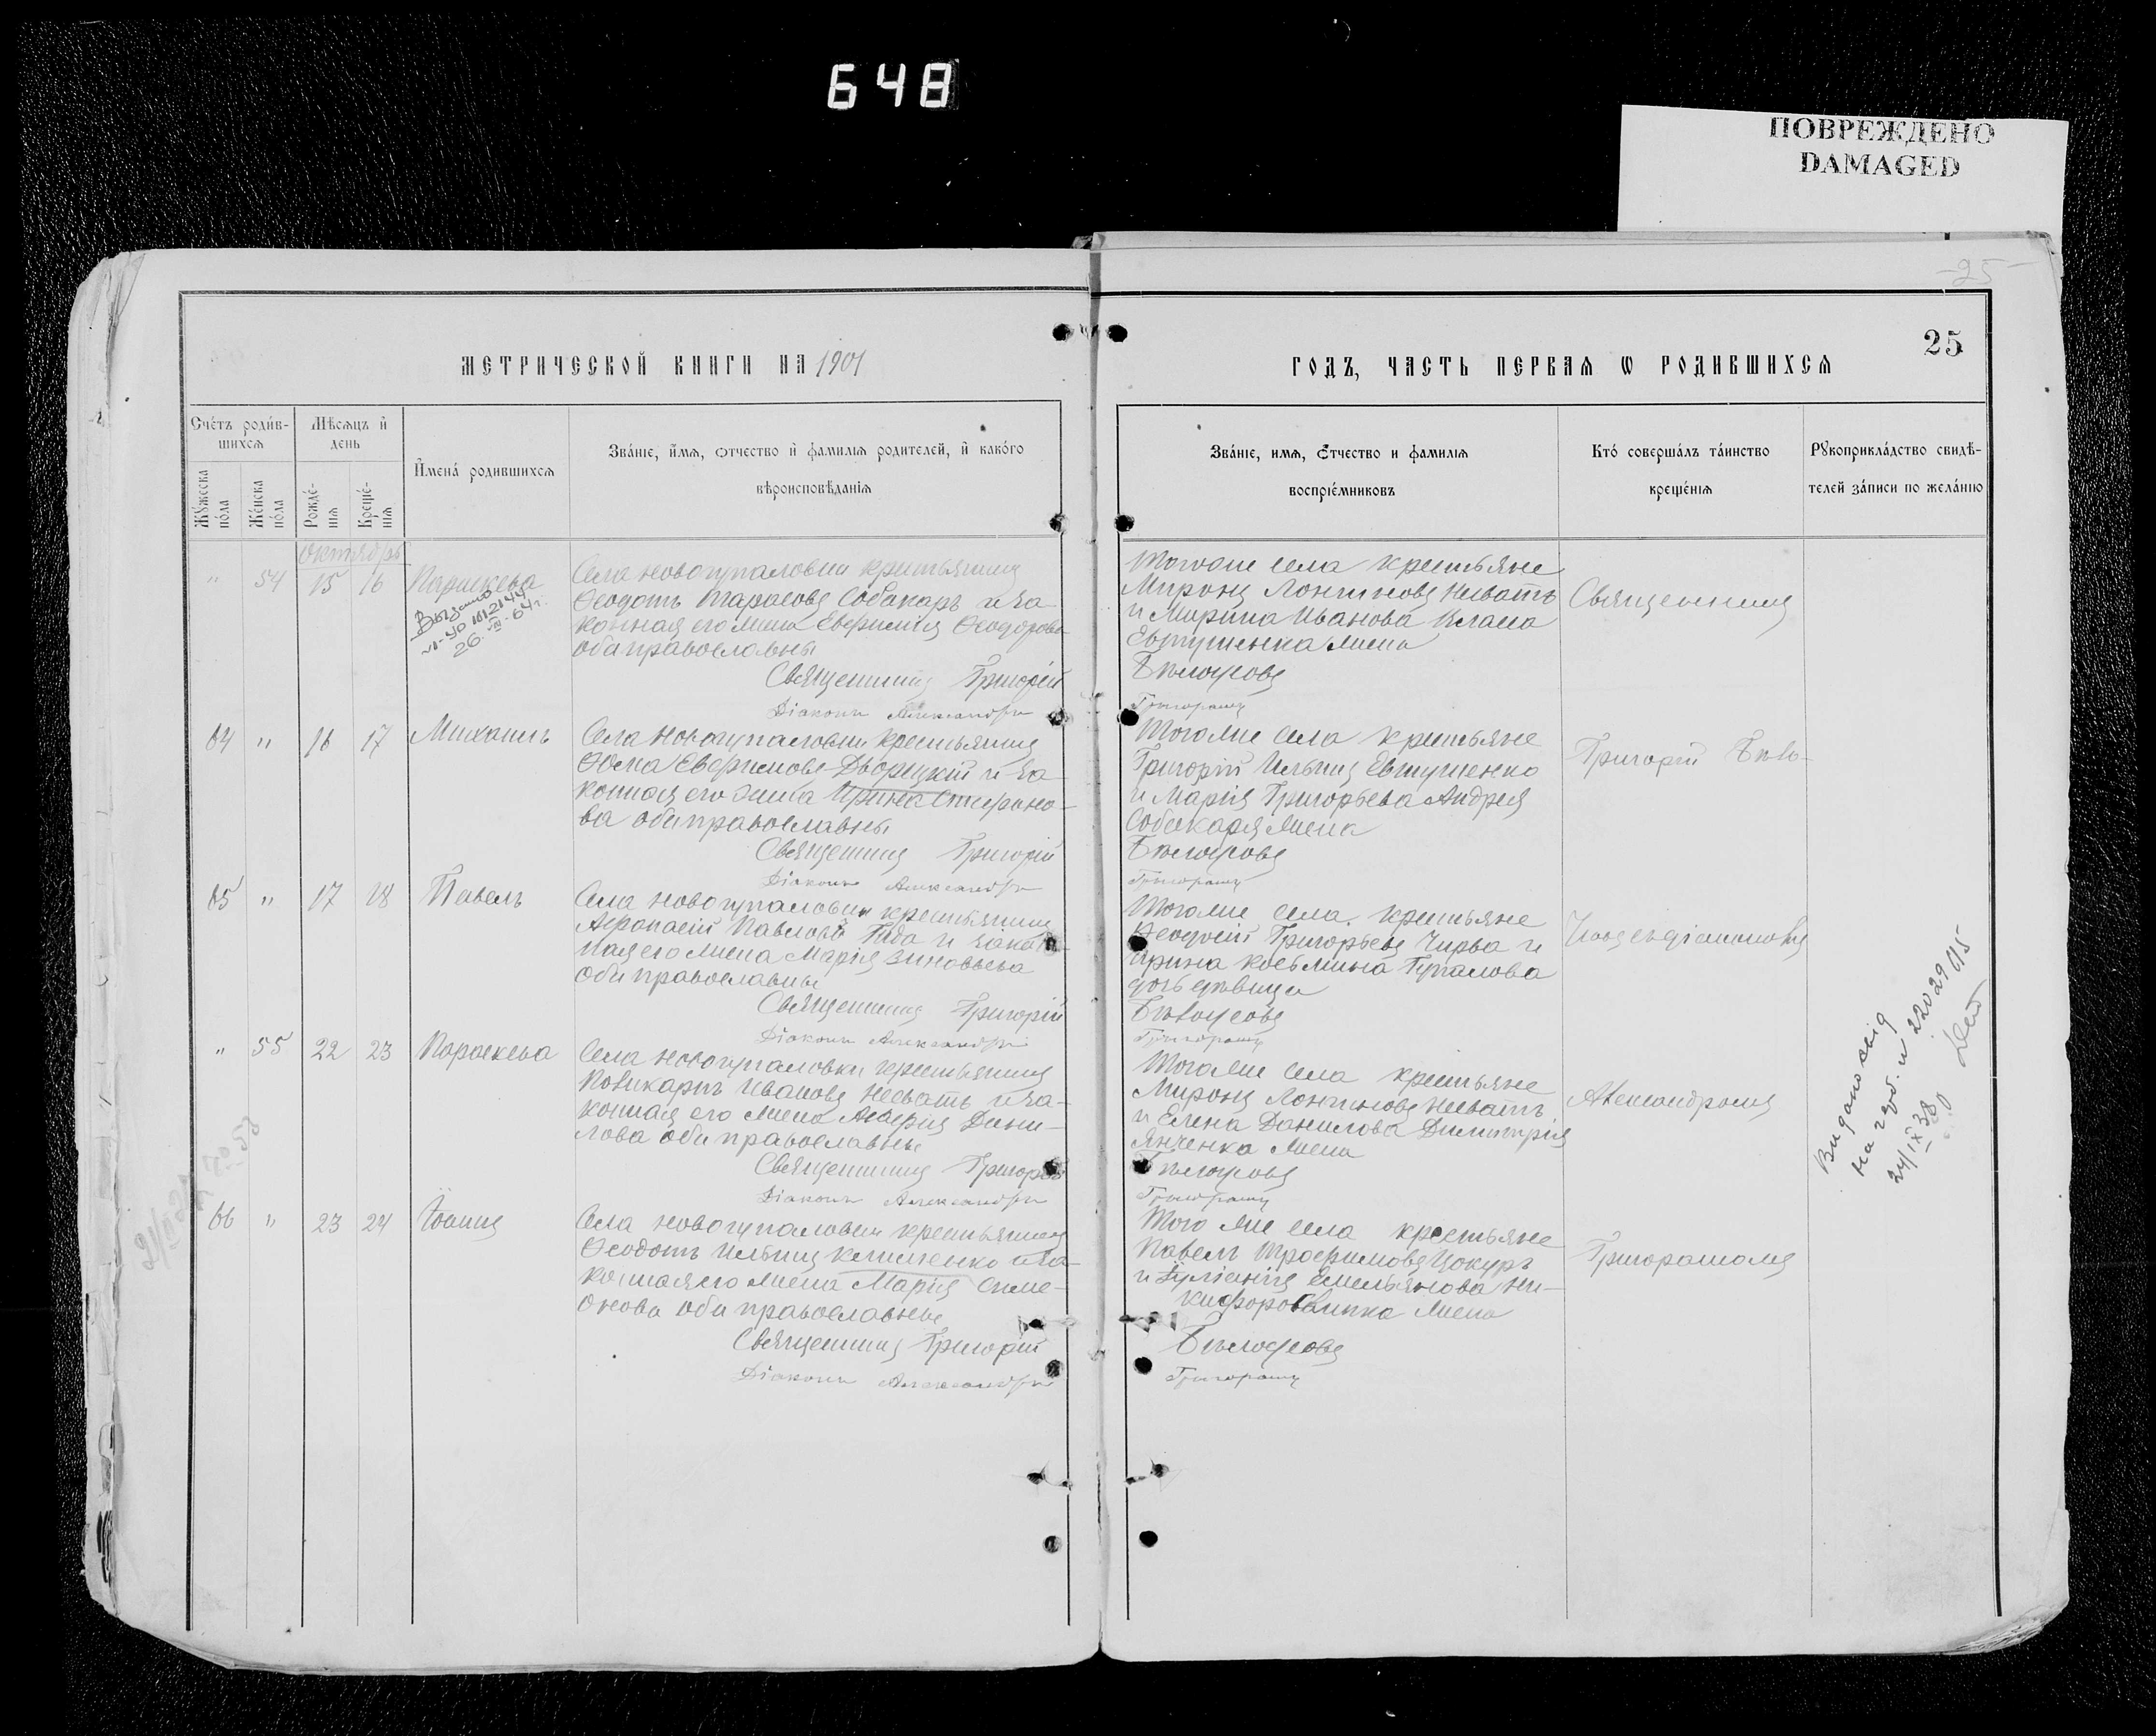 648
ПОВРЕЖДЕНО
DAMAGED
-25-
25
МЕТРИЧЕСКОЙ КНИГИ НА 1901
ГОДЪ, ЧАСТЬ ПЕРВАѦ Ѡ РОДИВШИХСѦ
Счéтъ роди́в-
шихсѧ
Мѣсѧцъ и҆
день
Мꙋжеска
пóла
Жéнска
пóла
Рождé-
нїѧ
Крещé-
нїѧ
И҆менá родившихсѧ
Звáнїе, и҆мѧ, ѻтчество и҆ фамилїѧ родителей, и҆ какóго
вѣроисповѣданїѧ
Звáнїе, имѧ, Ѻтчество и фамилїѧ
воспрїéмниковъ
Ктó совершáлъ тáинство
крещéнїѧ
Рꙋкоприклáдство свидѣ-
телей зáписи по желáнїю
Октябрь
" 54 15 16 Параскева
Выдано
26.VIII-64г.
Села Новогупаловки крестьянинъ
Ѳеодотъ Тарасовъ Собакарь и за-
конная его жена Евфимія Ѳеодорова
оба православны
Священникъ Григорій
Діаконъ Александръ
Тогоже села крестьяне
Миронъ Лонгиновъ Невать
и Марина Иванова Власа
Евтушенка жена
Бѣлоусовъ
Григорашъ
Священникъ
64 " 16 17 Михаилъ
Села Новогупаловки крестьянинъ
Ѳома Евфимовъ Дворецкій и за-
конная его жена Ирина Стефано-
ва оба православны
Священникъ Григорій
Діаконъ Александръ
Тогоже села крестьяне
Григорій Ильинъ Евтушенко
и Марія Григорьева Андрея
Собакаря жена
Бѣлоусовъ
Григорашъ
Григорій Бѣло-
65 " 17 18 Павелъ
Села Новогупаловки крестьянинъ
Аѳанасій Павловъ Гнѣда и закон-
ная его жена Марія Зиновьева
оба православны
Священникъ Григорій
Діаконъ Александръ
Тогоже села крестьяне
Ѳеодосій Григорьевъ Чирва и
Ирина Косьмина Гупалова
дочь дѣвица
Бѣлоусовъ
Григорашъ
усовъ съ діакономъ
" 55 22 23 Параскева
Села Новогупаловки крестьянинъ
Поликарпъ Ивановъ Невать и за-
конная его жена Дани-
лова оба православны
Священникъ Григорій
Діаконъ Александръ
Тогоже села крестьяне
Миронъ Лонгиновъ Невать
и Елена Данилова Димитрія
Янченка жена
Бѣлоусовъ
Григорашъ
Александромъ
Видано свід
на 22029015
24/IX 38
66 " 23 24 Іоаннъ
Села Новогупаловки крестьянинъ
Ѳеодотъ Ильинъ Клименко и за-
конная его жена Марія Симе-
онова оба православны
Священникъ Григорій
Діаконъ Александръ
Того же села крестьяне
Павелъ Трофимовъ Цокуръ
и Іуліанія Емельянова Ни-
кифора жена
Бѣлоусовъ
Григорашъ
Григорашомъ